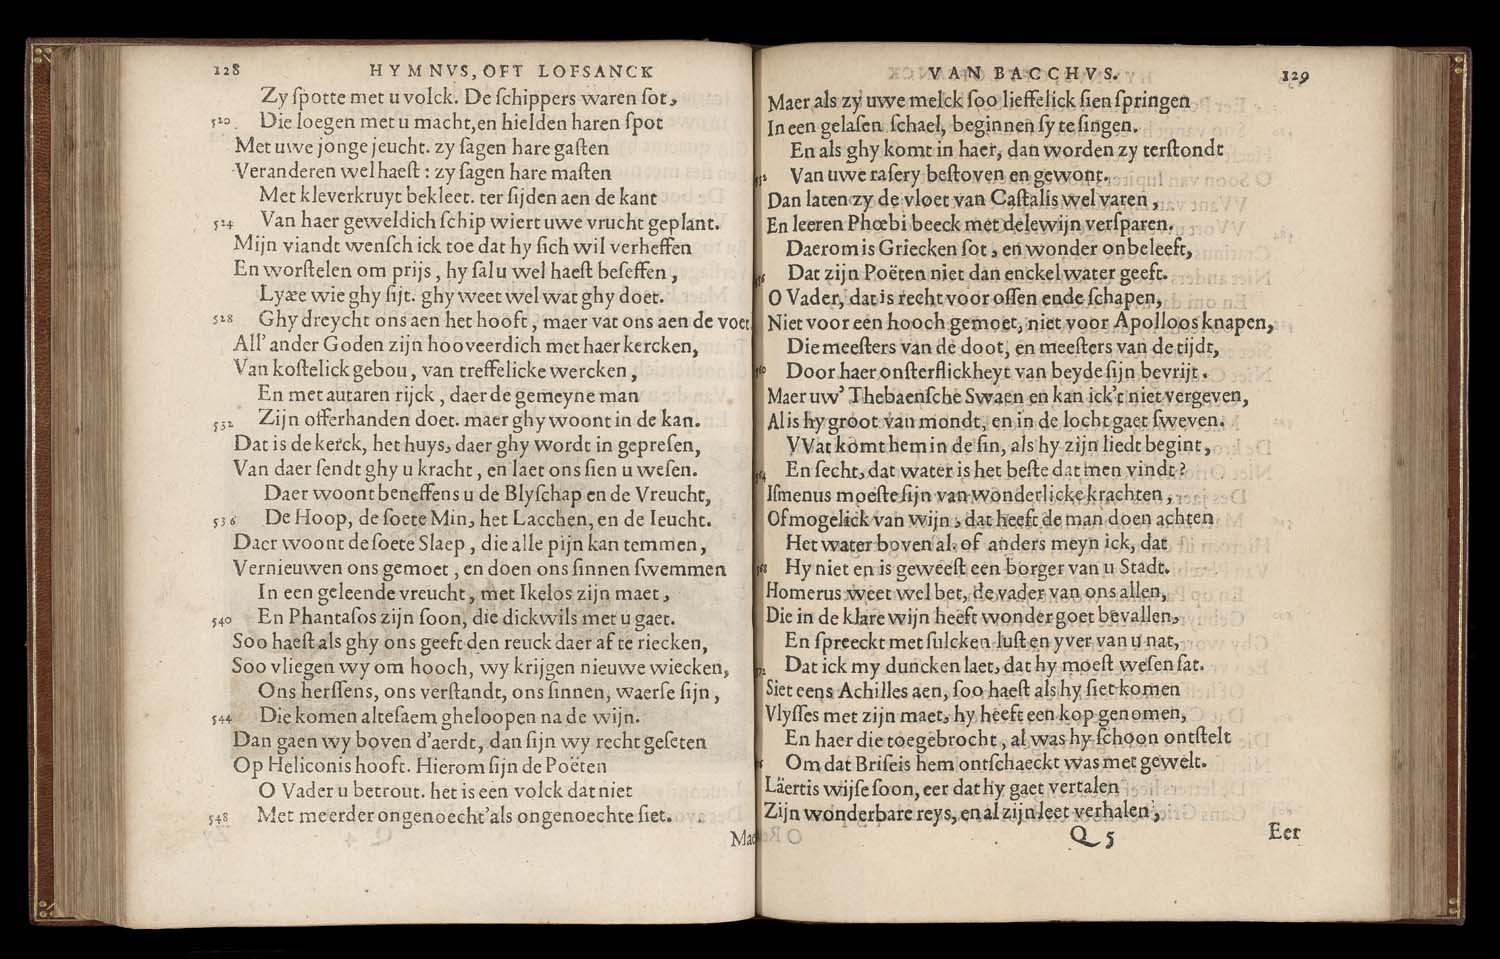 128 HYMNVS, OFT LOFSANCK
Zy ſpotte met u volck. De ſchippers waren ſot,
520 Die loegen met u macht, en hielden haren ſpot
Met uwe jonge jeucht. zy ſagen hare gaſten
Veranderen wel haeſt : zy ſagen hare maſten
Met kleverkruyt bekleet. ter ſijden aen de kant
524 Van haer geweldich ſchip wiert uwe vrucht geplant.
Mijn viandt wenſch ick toe dat hy ſich wil verheffen
En worſtelen om prijs, hy ſal u wel haeſt beſeffen,
Lyæe wie ghy ſijt. ghy weet wel wat ghy doet.
528 Ghy dreycht ons aen het hooft, maer vat ons aen de voet
All' ander Goden zijn hooveerdich met haer kercken,
Van koſtelick gebou, van treffelicke wercken,
En met autaren rijck, daer de gemeyne man
532 Zijn offerhanden doet. maer ghy woont in de kan.
Dat is de kerck, het huys, daer ghy wordt in gepreſen,
Van daer ſendt ghy u kracht, en laet ons ſien u weſen.
Daer woont beneffens u de Blyſchap en de Vreucht,
536 De Hoop, de ſoete Min, het Lacchen, en de Ieucht.
Daer woont de ſoete Slaep, die alle pijn kan temmen,
Vernieuwen ons gemoet, en doen ons ſinnen ſwemmen
In een geleende vreucht, met Ikelos zijn maet,
540 En Phantaſos zijn ſoon, die dickwils met u gaet.
Soo haeſt als ghy ons geeft den reuck daer af te riecken,
Soo vliegen wy om hooch, wy krijgen nieuwe wiecken,
Ons herſſens, ons verſtandt, ons ſinnen, waerſe ſijn,
544 Die komen alteſaem gheloopen na de wijn.
Dan gaen wy boven d'aerdt, dan ſijn wy recht geſeten
Op Heliconis hooft. Hierom ſijn de Poëten
O Vader u betrout. het is een volck dat niet
548 Met meerder ongenoecht' als ongenoechte ſiet.
VAN BACCHVS. 129
Maer als zy uwe melck ſoo lieffelick ſien ſpringen
In een gelaſen ſchael, beginnen ſy te ſingen.
En als ghy komt in haer, dan worden zy terſtondt
Van uwe raſery beſtoven en gewont.
Dan laten zy de vloet van Caſtalis wel varen,
En leeren Phœbi beeck met delewijn verſparen.
Daerom is Griecken ſot, en wonder onbeleeft,
Dat zijn Poëten niet dan enckel water geeft.
O Vader, dat is recht voor oſſen ende ſchapen,
Niet voor een hooch gemoet, niet voor Apolloos knapen,
Die meeſters van de doot, en meeſters van de tijdt,
Door haer onſterflickheyt van beyde ſijn bevrijt.
Maer uw' Thebaenſche Swaen en kan ick't niet vergeven,
Al is hy groot van mondt, en in de locht gaet ſweven.
VVat komt hem in de ſin, als hy zijn liedt begint,
En ſecht, dat water is het beſte dat men vindt?
Iſmenus moeſte ſijn van wonderlicke krachten,
Of mogelick van wijn, dat heeft de man doen achten
Het water boven al. of anders meyn ick, dat
Hy niet en is geweeſt een borger van u Stadt.
Homerus weet wel bet, de vader van ons allen,
Die in de klare wijn heeft wonder goet bevallen,
En ſpreeckt met ſulcken luſt en yver van u nat,
Dat ick my duncken laet, dat hy moeſt weſen ſat.
Siet eens Achilles aen, ſoo haeſt als hy ſiet komen
Vlyſſes met zijn maet, hy heeft een kop genomen,
En haer die toegebrocht, al was hy ſchoon ontſtelt
Om dat Briſeis hem ontſchaeckt was met gewelt.
Läertis wijſe ſoon, eer dat hy gaet vertalen
Zijn wonderbare reys, en al zijn leet verhalen,
Q 5 Eer